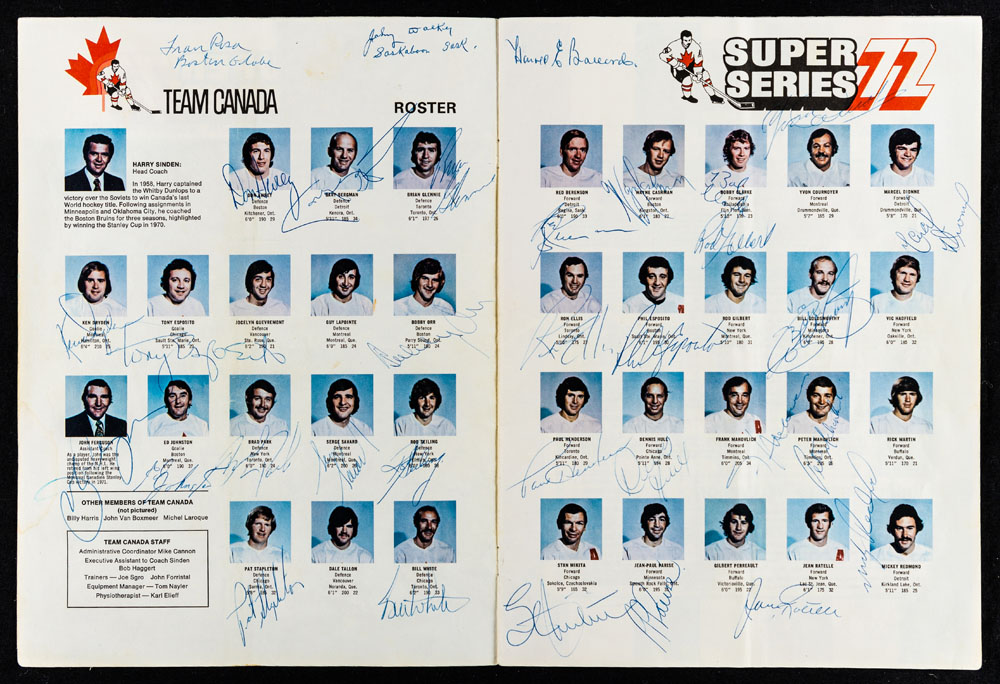 Fran Rosa
Boston Globe
Saskatoon Sask.
TEAM CANADA
ROSTER
HARRY SINDEN:
Head Coach
In 1958, Harry captained
the Whitby Dunlops to a
victory over the Soviets to win Canada's last
World hockey title. Following assignments in
Minneapolis and Oklahoma City, he coached
the Boston Bruins for three seasons, highlighted
by winning the Stanley Cup in 1970.
Defence
Boston
Kitchener, Ont.
6'2" 190 29
GARY BERGMAN
Defence
Detroit
Kenora, Ont.
BRIAN GLENNIE
Defence
Toronto
Toronto, Ont.
KEN DRYDEN
Goalie
Hamilton, Ont.
TONY ESPOSITO
Goalie
Chicago
Sault Ste. Marie, Ont.
5'11" 185
JOCELYN GUEVREMONT
Defence
Vancouver
Montreal, Que.
6'2"
GUY LAPOINTE
Defence
Montreal
Montreal, Que.
6'0" 185 24
BOBBY ORR
Defence
Boston
Parry Sound, Ont.
24
Tony Esposito
JOHN FERGUSON
Assistant Coach
As a player, John was the
undisputed heavyweight
champ of the N.H.L. He
ED JOHNSTON
Goalie
Boston
Montreal, Que.
BRAD PARK
Defence
New York
Toronto, Ont.
SERGE SAVARD
Defence
Montreal
Montreal, Que.
ROD SEILING
Defence
New York
OTHER MEMBERS OF TEAM CANADA
(not pictured)
Billy Harris John Van Boxmeer Michel Laroque
TEAM CANADA STAFF
Administrative Coordinator Mike Cannon
Executive Assistant to Coach Sinden
Bob Haggert
Trainers — Joe Sgro John Forristal
Equipment Manager — Tom Nayler
Physiotherapist — Karl Elieff
PAT STAPLETON
Defence
Chicago
Sarnia, Ont.
DALE TALLON
Defence
Vancouver
Noranda, Que.
6'1" 200 22
BILL WHITE
Defence
Chicago
Toronto, Ont.
Pat Stapleton
Bill White
SUPER
SERIES 72
RED BERENSON
Forward
Detroit
Regina, Sask.
6'0" 190 33
WAYNE CASHMAN
Forward
Boston
Kingston, Ont.
BOBBY CLARKE
Forward
Philadelphia
Flin Flon, Man.
YVON COURNOYER
Forward
Montreal
Drummondville, Que.
MARCEL DIONNE
Forward
Detroit
Drummondville, Que.
5'8" 170 21
Rod Gilbert
Marcel Dionne
RON ELLIS
Forward
Toronto
Lindsay, Ont.
PHIL ESPOSITO
Forward
Boston
Sault Ste. Marie, Ont.
ROD GILBERT
Forward
New York
Montreal, Que.
BILL GOLDSWORTHY
Forward
Minnesota
VIC HADFIELD
Forward
New York
Oakville, Ont.
R Ellis
Phil Esposito
PAUL HENDERSON
Forward
Toronto
Kincardine, Ont.
DENNIS HULL
Forward
Chicago
Pointe Anne, Ont.
FRANK MAHOVLICH
Forward
Montreal
Timmins, Ont.
6'0" 205 34
PETER MAHOVLICH
Forward
Montreal
Timmins, Ont.
RICK MARTIN
Forward
Buffalo
Verdun, Que.
5'11" 170 21
Paul Henderson
STAN MIKITA
Forward
Chicago
Sokolce, Czechoslovakia
JEAN-PAUL PARISE
Forward
Minnesota
Smooth Rock Falls, Ont.
GILBERT PERREAULT
Forward
Buffalo
Victoriaville, Que.
JEAN RATELLE
Forward
New York
Lac St. Jean, Que.
6'1" 175 32
MICKEY REDMOND
Forward
Detroit
Kirkland Lake, Ont.
5'11" 185 25
Jean Ratelle